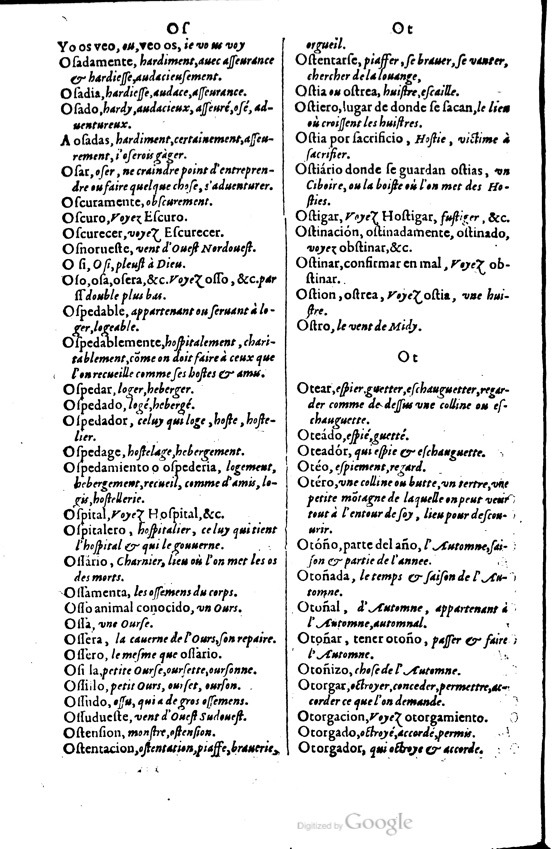 Os
Yo os veo, ou, veo os, ie vo us voy
Osadamente, hardiment, auec asseurance
& hardiesse, audacieusement.
Osadia, hardiesse, audace, asseurance.
Osado, hardy, audacieux, asseuré, osé, ad-
uentureux.
A osadas, hardiment, certainement, asseu-
rement, i'oserois gager.
Osar, oser, ne craindre point d'entrepren-
dre ou faire quelque chose, s'aduenturer.
Oscuramente, obscurement.
Oscuro, Voyez Escuro.
Oscurecer, voyez Escurecer.
Osnorueste, vent d'Ouest Nordouest.
O si, O si, pleust à Dieu.
Oso, osa, osera, &c. Voyez osso, &c. par
ss double plus bas.
Ospedable, appartenant ou seruant à lo-
ger, logeable.
Ospedablemente, hospitalement, chari-
tablement, cõme on doit faire à ceux que
l'on recueille comme ses hostes & amu.
Ospedar, loger, heberger.
Ospedado, logé, hebergé.
Ospedador, celuy qui loge, hoste, hoste-
lier.
Ospedage, hostelage, hebergement.
Ospedamiento o ospederia, logement,
hebergement, recueil, comme d'amis, lo-
gis, hostellerie.
Ospital, Voyez Hospital, &c.
Ospitalero, hospitalier, celuy qui tient
l'hospital & qui le gouuerne.
Ossàrio, Charnier, lieu où l'on met les os
des morts.
Ossamenta, les ossemens du corps.
Osso animal conocido, vn Ours.
Ossa, vne Ourse.
Ossera, la cauerne de l'Ours, son repaire.
Ossero, le mesme que ossario.
Osilla, petite Ourse, oursette, oursonne.
Ossillo, petit Ours, ourset, ourson.
Ossudo, ossu, qui a de gros ossemens.
Ossudueste, vent d'Ouest Sudouest.
Ostension, monstre, ostension.
Ostentacion, ostentation, piaffe, brauerie,
Ot
orgueil.
Ostentarse, piaffer, se brauer, se vanter,
chercher de la louange,
Ostia ou ostrea, huistre, escaille.
Ostiero, lugar de donde se sacan, le lieu
où croissent les huistres.
Ostia por sacrificio, Hostie, victime à
sacrifier.
Ostiário donde se guardan ostias, vn
Ciboire, ou la boiste où l'on met des Ho-
sties.
Ostigar, Voyez Hostigar, fustiger, &c.
Ostinación, ostinadamente, ostinado,
voyez obstinar, &c.
Ostinar, confirmar en mal, Voyez ob-
stinar.
Ostion, ostrea, Voyez ostia, vne hui-
stre.
Ostro, le vent de Midy.
Ot
Otear, espier, guetter, eschauguetter, regar-
der comme de dessus vne colline ou es-
chauguette.
Oteádo, espié, guetté.
Oteadór, qui espie & eschauguette.
Otéo, espiement, regard.
Otéro, vne colline ou butte, vn tertre, vne
petite mõtagne de laquelle on peut veoir
tout à l'entour de soy, lieu pour descou-
urir.
Otóño, parte del año, l'Automne, sai-
son & partie de l'annee.
Otoñada, le temps & saison de l'Au-
tomne.
Otoñal, d'Automne, appartenant à
l'Automne, automnal.
Otoñar, tener otoño, passer & faire
l'Automne.
Otoñizo, chose de l'Automne.
Otorgar, octroyer, conceder, permettre, ac-
corder ce que l'on demande.
Otorgacion, Voyez otorgamiento.
Otorgado, octroyé, accordé, permis.
Otorgador, qui octroye & accorde.
Digitized by Google